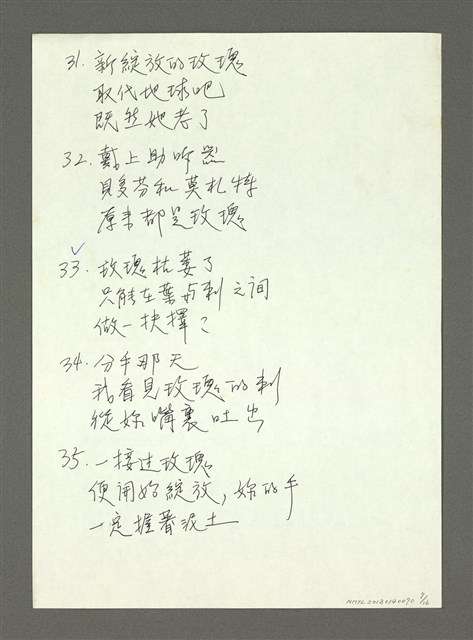 31. 新綻放的玫瑰
取代地球吧
既然她老了
32. 戴上助听器
貝多芬和莫札特
原來都是玫瑰
33. 玫瑰枯萎了
只能在葉与刺之间
做一抉擇？
34. 分手那天
我看見玫瑰的刺
從妳嘴裏吐出
35. 一接过玫瑰
便開始綻放，妳的手
一定握著泥土
NMTL20130140090 7/16